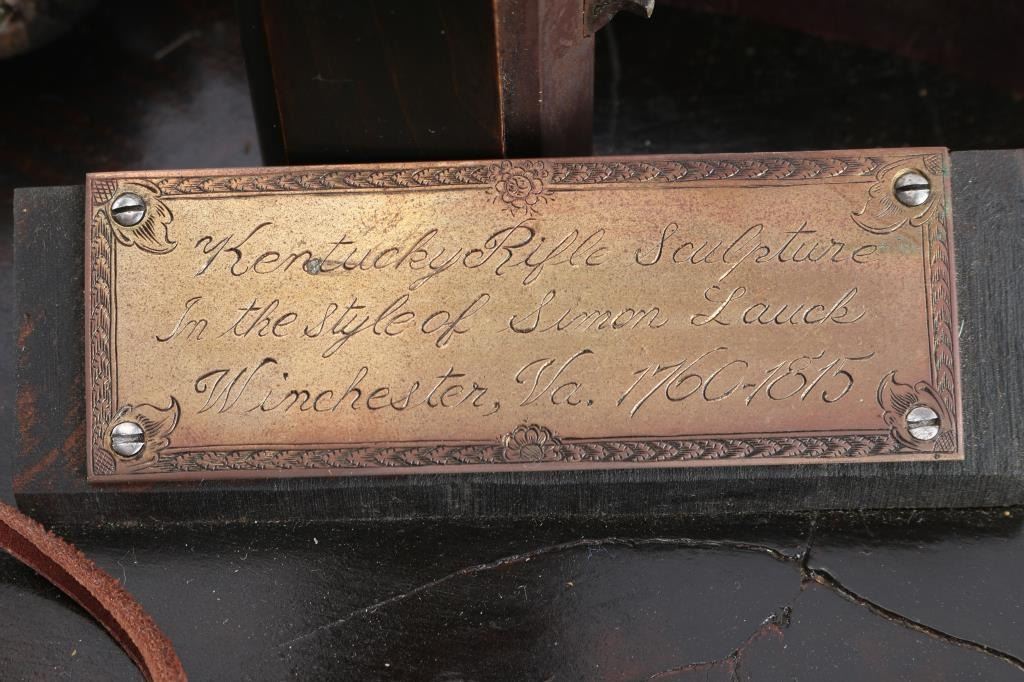 Kentucky Rifle Sculpture
In the style of Simon Lauck
Winchester, Va. 1760-1815